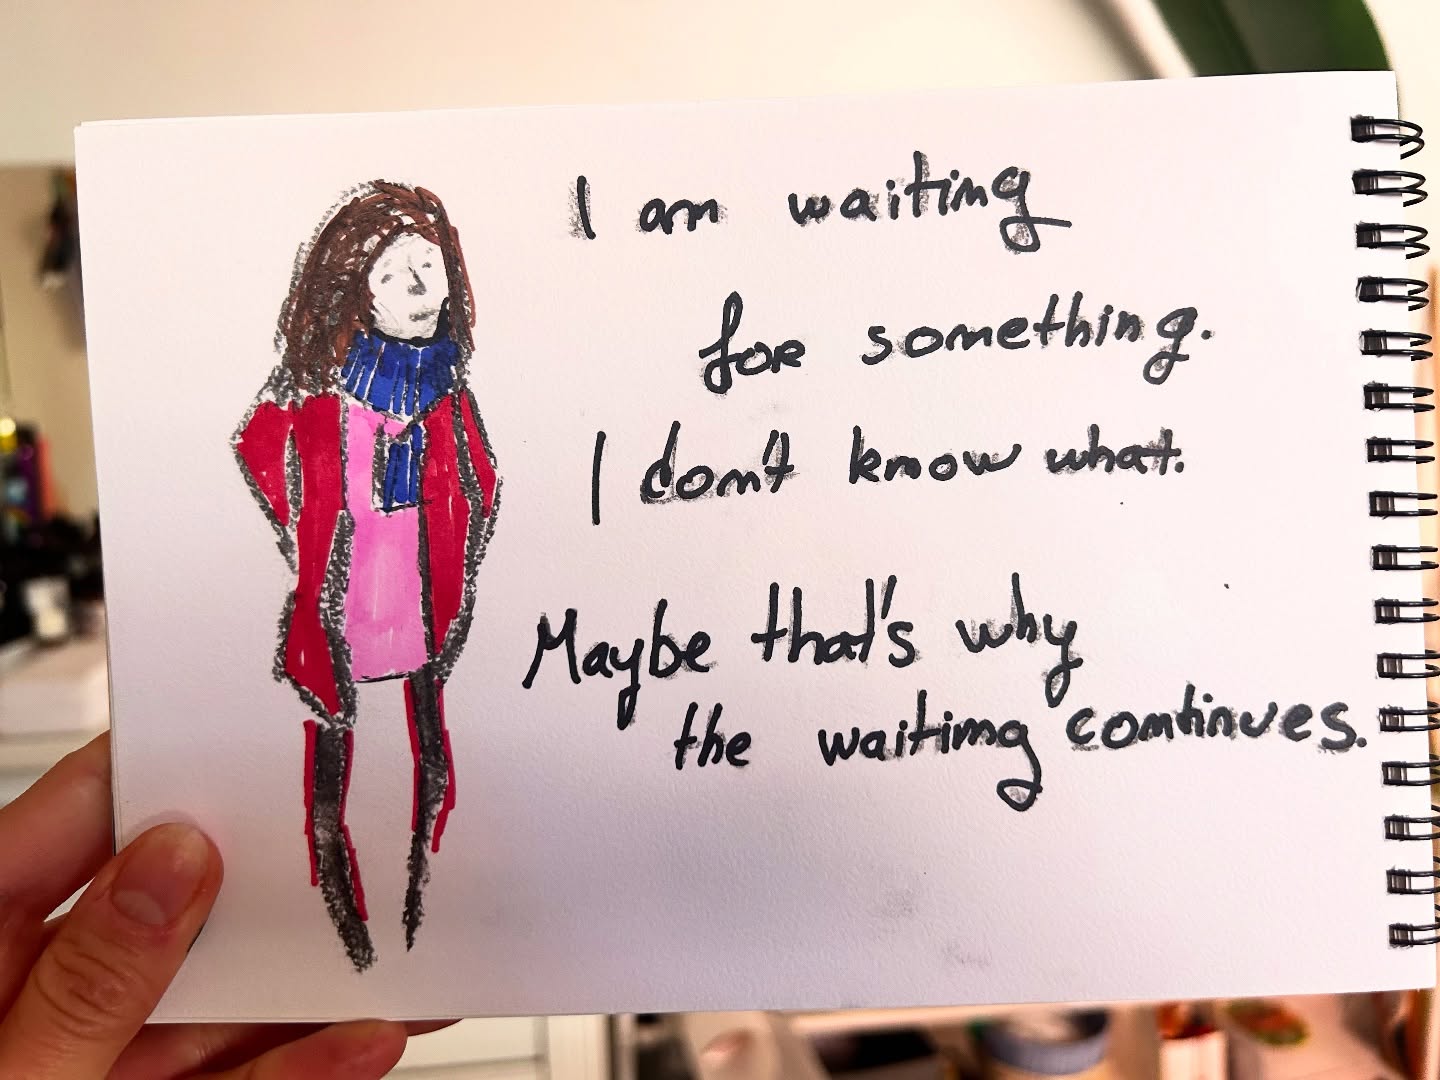 I am waiting
for something.
I don't know what.
Maybe that's why
the waiting continues.